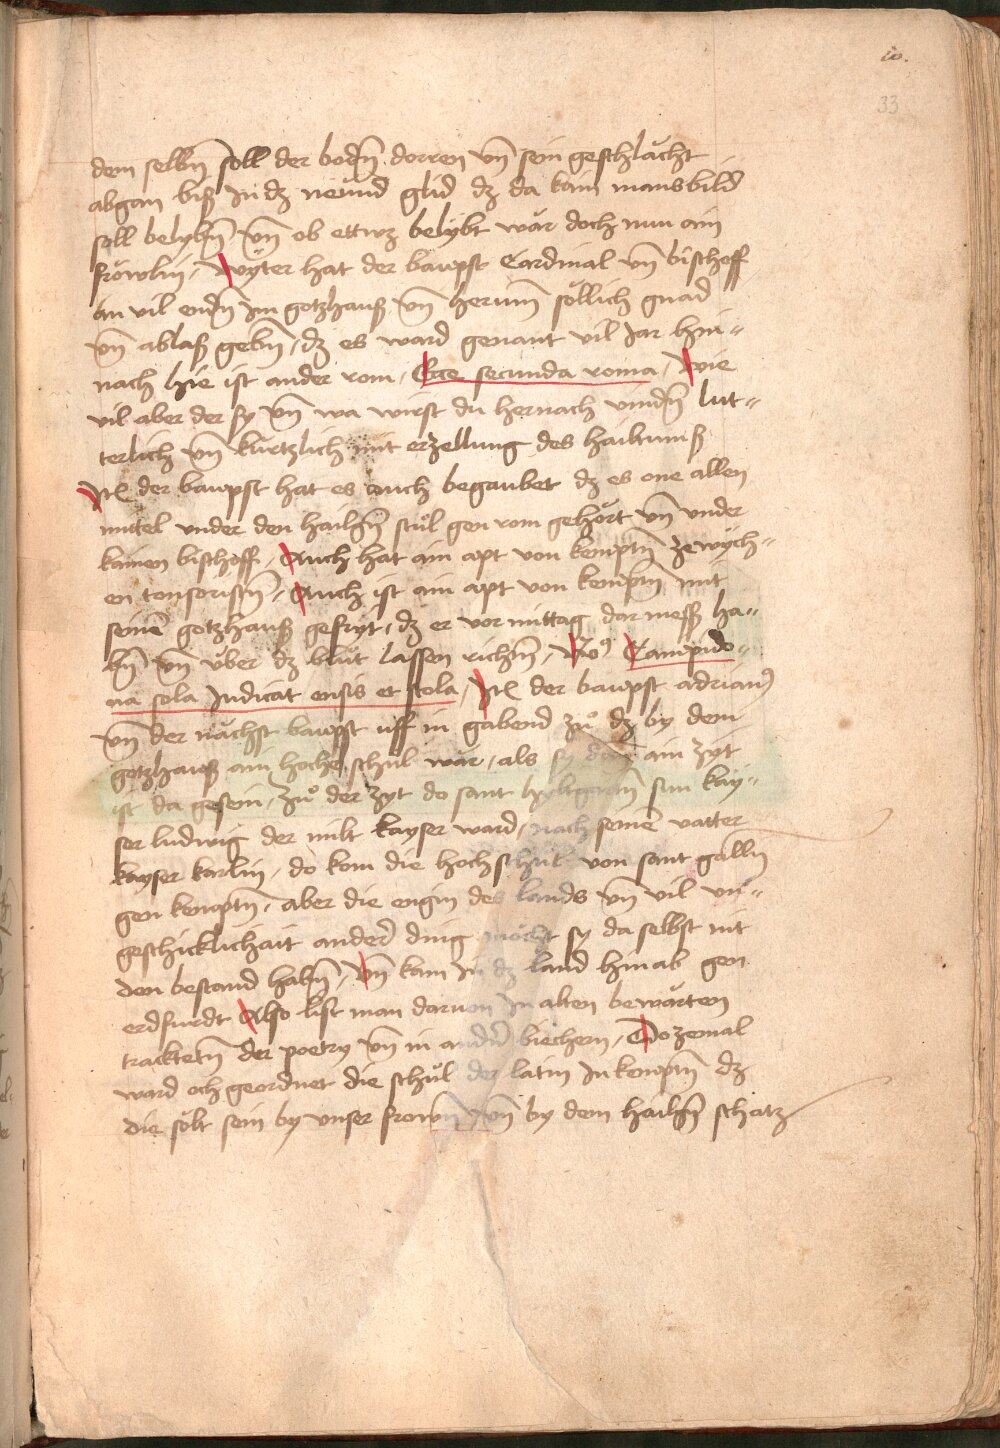 io.
33
dem selbn̄ soll der bodn̄ dorren vn̄ sein geschlächt
abgan biß in dz neünd glid dz da kain mansbild
soll belybn̄ vn̄ ob ettwz belybt wär doch nun ain
fröwlin / Wyter hat der bawpst Cardinal vn̄ bischoff
an vil endn̄ im gotzhauß vn̄ herumm söllich gnad
vn̄ ablaß gebn̄ / dz es ward genant vil Jar hin-
nach hie ist ander rom / Ecce secunda roma / Wie
vil aber der sy vn̄ wa wirst du hernach vindn̄ lut-
terlich vn̄ kurtzlich mit erzellung des hailtumß
Itē der bawpst hat es auch begaubet dz es one allen
mittel vnder den hailgn̄ stůl gen rom gehört vn̄ vnder
kainen bischoff / Auch hat ain apt von kemptn̄ ze wych-
en tonsoristn̄ / Auch ist ain apt von kemptn̄ mit
seinē gotzhauß gefryt / dz er vor mittag dar messß ha-
bn̄ vn̄ über dz blůt lassen richtn̄ / Campido-
na sola Iudicat ensis et stola / Itē der bawpst adrian9
vn̄ der nächst bawpst uff in gabend zů dz by dem
gotzhauß ain hoche schůl wär / als ain zyt
ist da gesein / zů der zyt do sant sun kay-
ser ludwig der milt kayser ward / nach seinē vatter
kayser karlin / do kom die hochschůl von sant galln̄
gen kemptn̄ / aber die engin des lands vn̄ vil vn-
geschicklichait anderer ding möcht sy da selbst nit
den bestand habn̄ / vn̄ kam in dz land hinab gen
erdfurdt Also list man daruon in alten bewärten
tracktetn̄ der poetry vn̄ in andern biechern / Do zemal
ward och geordnet die schůl der latin in kemptn̄ dz
die sölt sein by vnser frowen vn̄ by dem hailgn̄ schatz